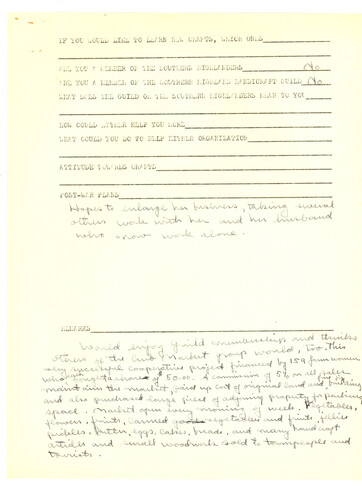 IF YOU WOULD LIKE TO LEARN NEW CRAFTS, WHICH ONES
ARE YOU A MEMBER OF THE SOUTHERN HIGHLANDERS No
ARE YOU A MEMBER OF THE SOUTHERN HIGHLAND HANDICRAFT GUILD No
WHAT DOES THE GUILD OR THE SOUTHERN HIGHLANDERS MEAN TO YOU
HOW COULD EITHER HELP YOU MORE
WHAT COULD YOU DO TO HELP EITHER ORGANIZATION
ATTITUDE TOWARDS CRAFTS
POST-WAR PLANS
Hopes to enlarge her business, taking several
others work with her and her husband
who now work alone.
REMARKS
Would enjoy Guild membership and thinks
others of the Curb Market group would, too. This
very successful cooperative project financed by 159 farm women
who bought shares @ 50.00. A commission of 5% on all sales
maintains the market, paid up cost of original land and building
and also purchased large piece of adjoining property for parking
space. Market open every morning of week. Vegetables,
flowers, fruits, canned goods vegetables and fruits, jellies
pickles, butter, eggs, cakes, breads, and many handicraft
articles and small woodwork sold to townspeople and
tourists.